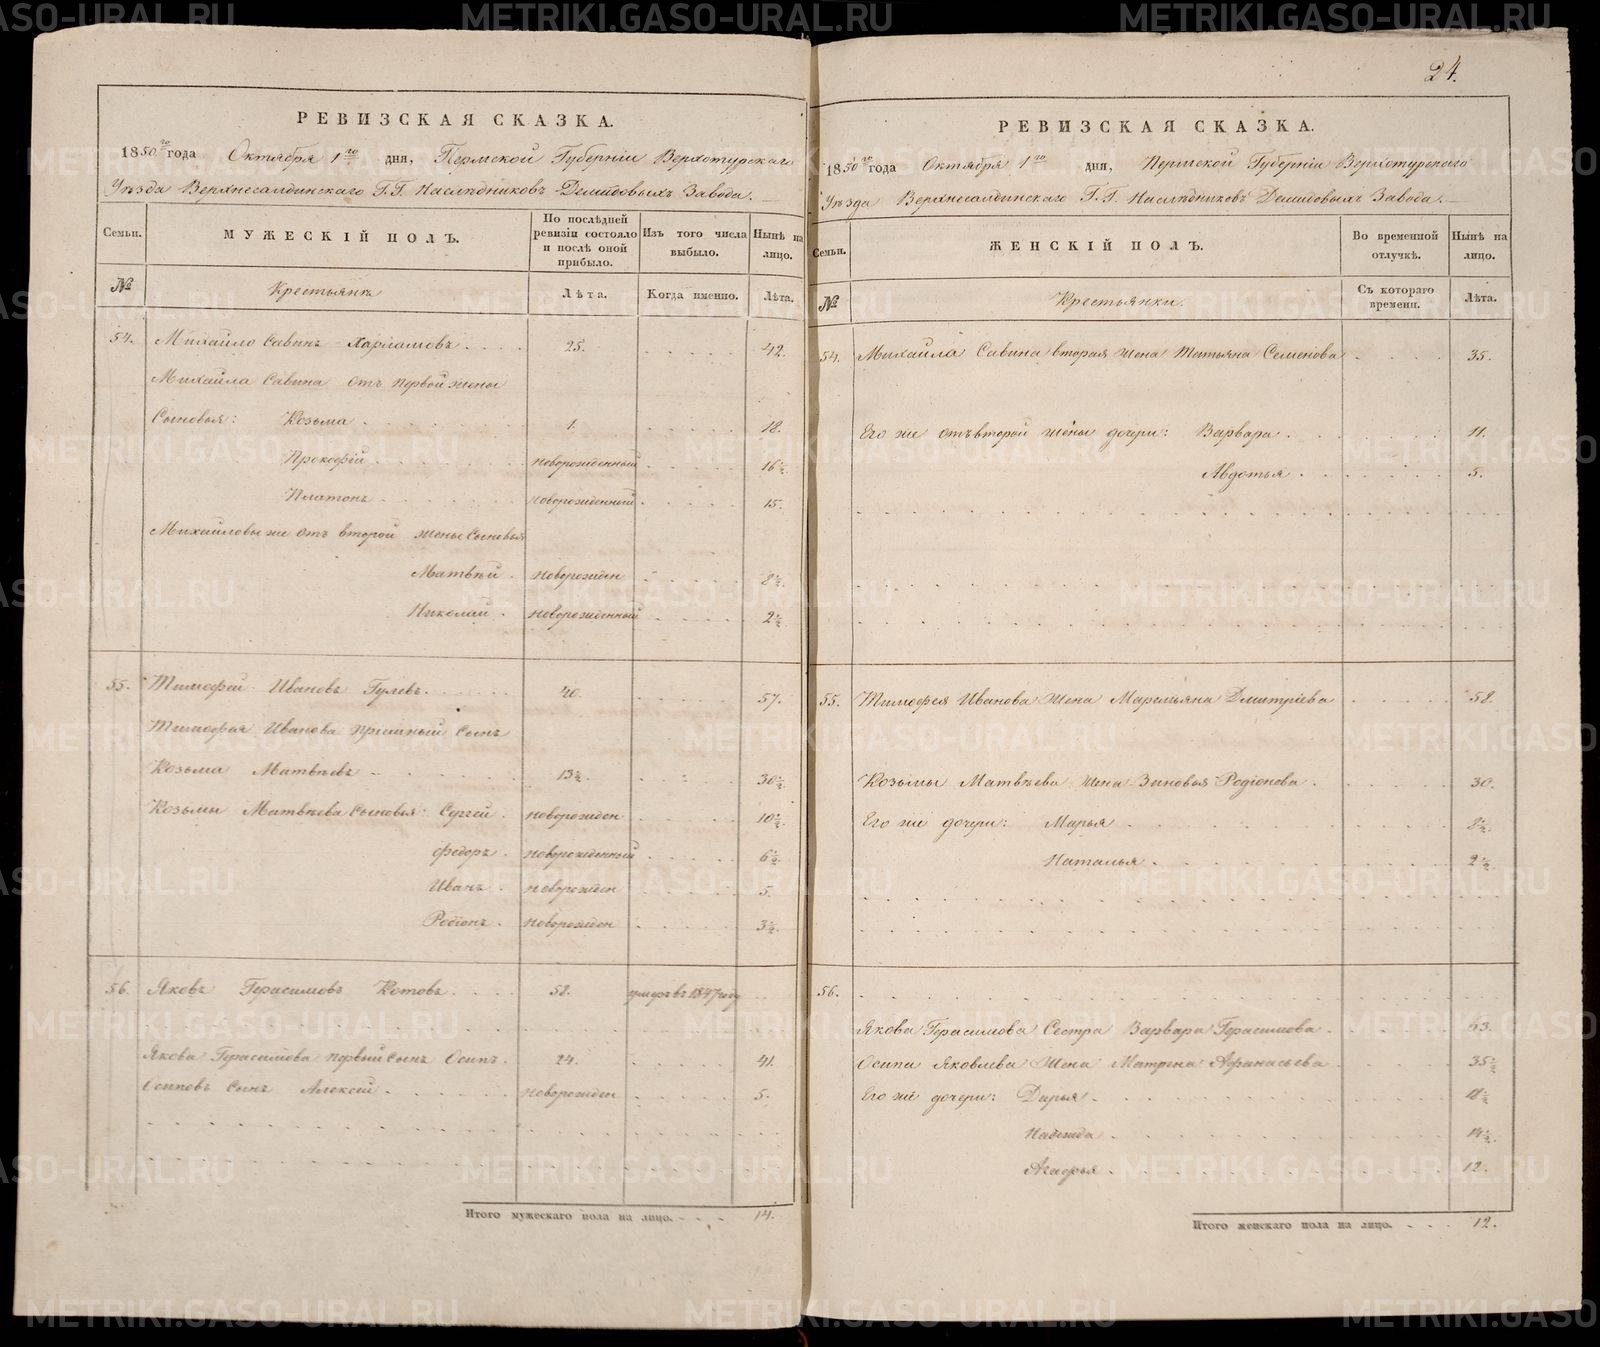 24.
РЕВИЗСКАЯ СКАЗКА.
1850го года Октября 1го дня, Пермской Губерніи Верхотурскаго
Уѣзда Верхнесалдинскаго Г.Г. Наслѣдниковъ Демидовыхъ Завода.
Семьи. МУЖЕСКІЙ ПОЛЪ. По послѣдней ревизіи состояло и послѣ оной прибыло. Изъ того числа выбыло. Нынѣ на лицо.
№ Крестьянъ Лѣта. Когда именно. Лѣта.
54. Михайло Савинъ Харламовъ . . . . 25. 42.
Михайла Савина отъ первой жены
Сыновья: Козьма 1. 18.
Прокофій новорожденный 16½
Платонъ новорожденный 15.
Михайловы же отъ второй жены Сыновья
Матвѣй новорожден 8½.
Николай новорожденный 2½
55. Тимофей Ивановъ Гулевъ 40. 57.
Тимофея Иванова пріемный сынъ
Козьма Матвѣевъ 13½. 30½.
Козьмы Матвѣева Сыновья: Сергей новорожден 10½.
Федоръ новорожденный 6½
Иванъ новорожден 5.
Родіонъ новорожден 3½.
56. Яковъ Герасимовъ Котовъ 58. умеръ въ 1847 году
Якова Герасимова первый сынъ Осипъ 24. 41.
Осиповъ сынъ Алексей новорожден 5.
Итого мужескаго пола на лицо. 14.
РЕВИЗСКАЯ СКАЗКА.
1850го года Октября 1го дня, Пермской Губерніи Верхотурскаго
Уѣзда Верхнесалдинскаго Г.Г. Наслѣдниковъ Демидовыхъ Завода.
Семьи. ЖЕНСКІЙ ПОЛЪ. Во временной отлучкѣ. Нынѣ на лицо.
№ Крестьянки. Съ котораго времени. Лѣта.
54. Михайла Савина вторая жена Татьяна Семенова 35.
Его же отъ второй жены дочери: Варвара 11.
Авдотья 5.
55. Тимофея Иванова жена Маремьяна Дмитріева 58.
Козьмы Матвѣева жена Зиновья Родіонова 30.
Его же дочери: Марья 8½.
Наталья 2½.
56.
Якова Герасимова Сестра Варвара Герасимова 63.
Осипа Яковлева Жена Матрена Афанасьева 35½
Его же дочери: Дарья 18½
Надежда 14½.
Агафья 12.
Итого женскаго пола на лицо. 12.
METRIKI.GASO-URAL.RU